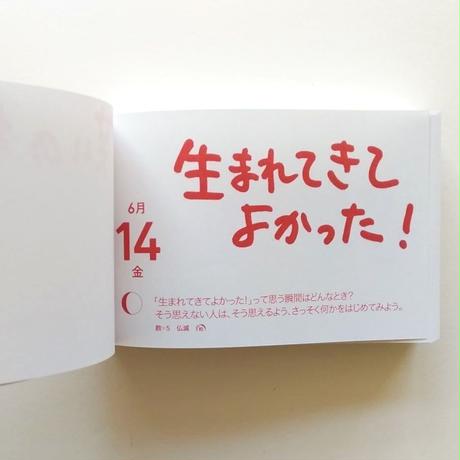 生まれてきて
よかった！
6月
14
金
「生まれてきてよかった！」って思う瞬間はどんなとき？
そう思えない人は、そう思えるよう、さっそく何かをはじめてみよう。
数=5 仏滅